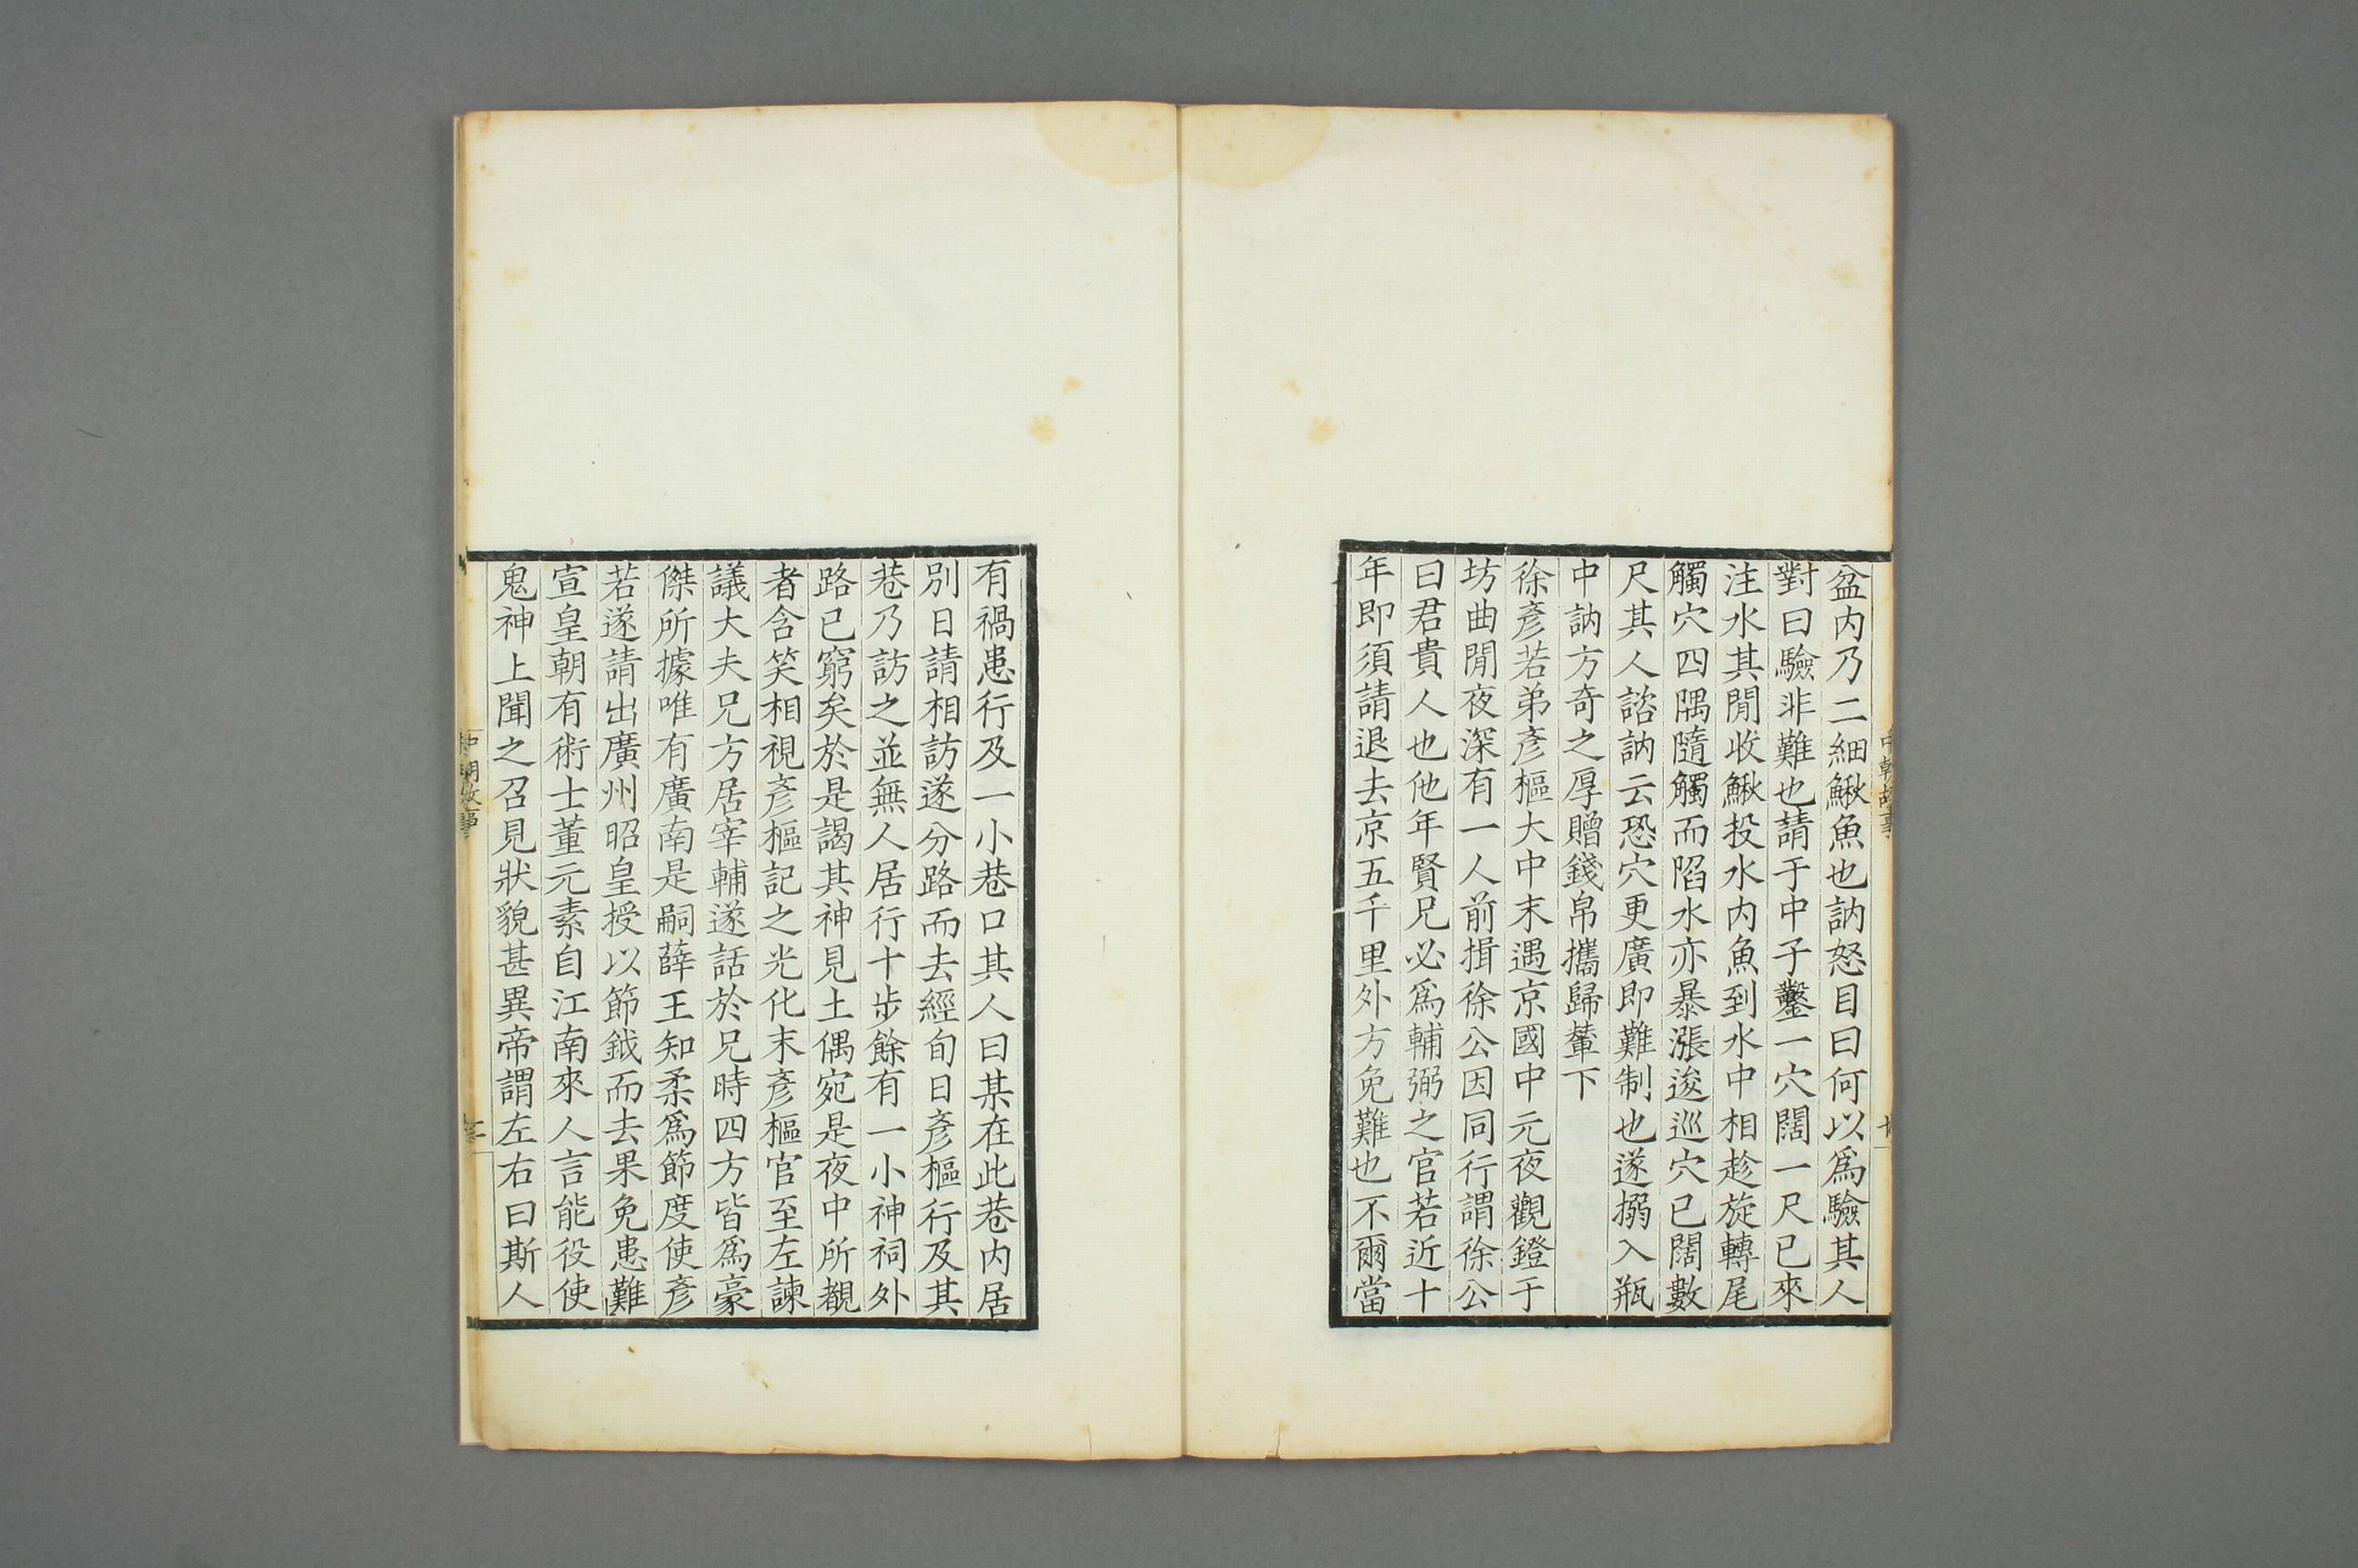 盆内乃二細鰍魚也訥怒目曰何以爲驗其人
對曰驗非難也請于中子鑿一穴闊一尺已來
注水其閒收鰍投水内魚到水中相趁旋轉尾
觸穴四隅隨觸而陷水亦暴漲逡巡穴已闊數
尺其人諮訥云恐穴更廣即難制也遂搦入瓶
中訥方奇之厚贈錢帛攜歸輦下
徐彥若弟彥樞大中末遇京國中元夜觀鐙于
坊曲閒夜深有一人前揖徐公因同行謂徐公
曰君貴人也他年賢兄必爲輔弼之官若近十
年即須請退去京五千里外方免難也不爾當
有禍患行及一小巷口其人曰某在此巷内居
別日請相訪遂分路而去經旬日彥樞行及其
巷乃訪之並無人居行十步餘有一小神祠外
路已窮矣於是謁其神見土偶宛是夜中所覩
者含笑相視彥樞記之光化末彥樞官至左諫
議大夫兄方居宰輔遂話於兄時四方皆爲豪
傑所據唯有廣南是嗣薛王知柔爲節度使彥
若遂請出廣州昭皇授以節鉞而去果免患難
宣皇朝有術士董元素自江南來人言能役使
鬼神上聞之召見狀貌甚異帝謂左右曰斯人
中朝故事